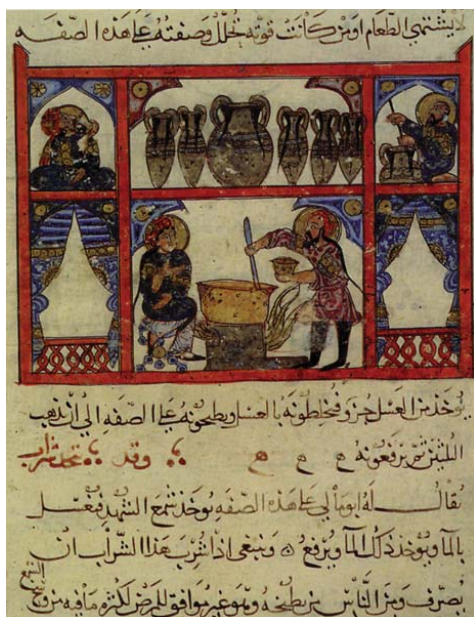 لا يشتهي الطعام او من كانت قوته تخلل وصفته على هذه الصفه
يوخذ من العسل جزو فيخلطونه بالعسل ويطبخونه على الصفه الى ان يذهب
الثلثين ثم يرفعونه وقد يتخذ شراب
يقال له ابومالي على هذه الصفه يوخذ شمع الشهد فيغسل
بالما ويوخذ ذلك الما ويرفع وينبغي اذا شرب هذا الشراب ان
يصرف ومن الناس من يطبخه وهو غير موافق للمرضى لكثره ما فيه من وسخ
الشمع